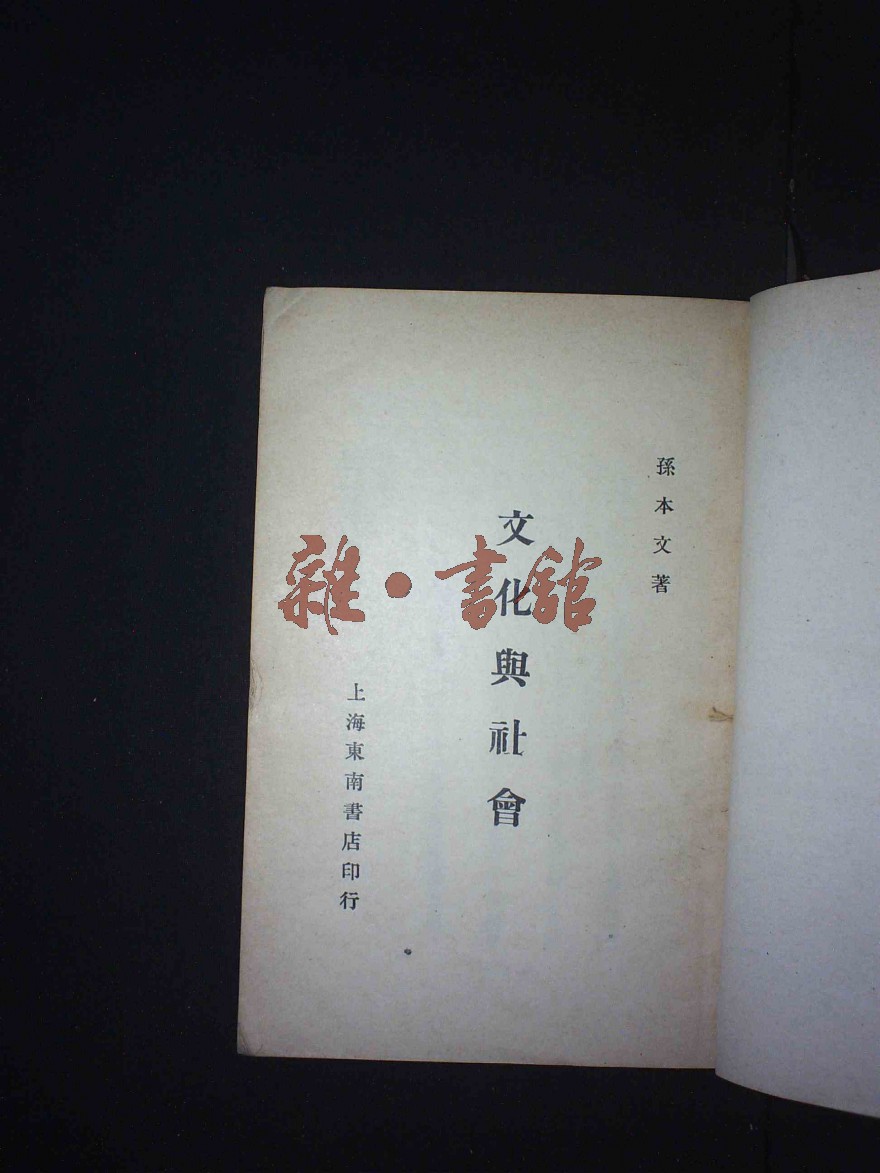 孫本文著
文化與社會
上海東南書店印行
雜·書館